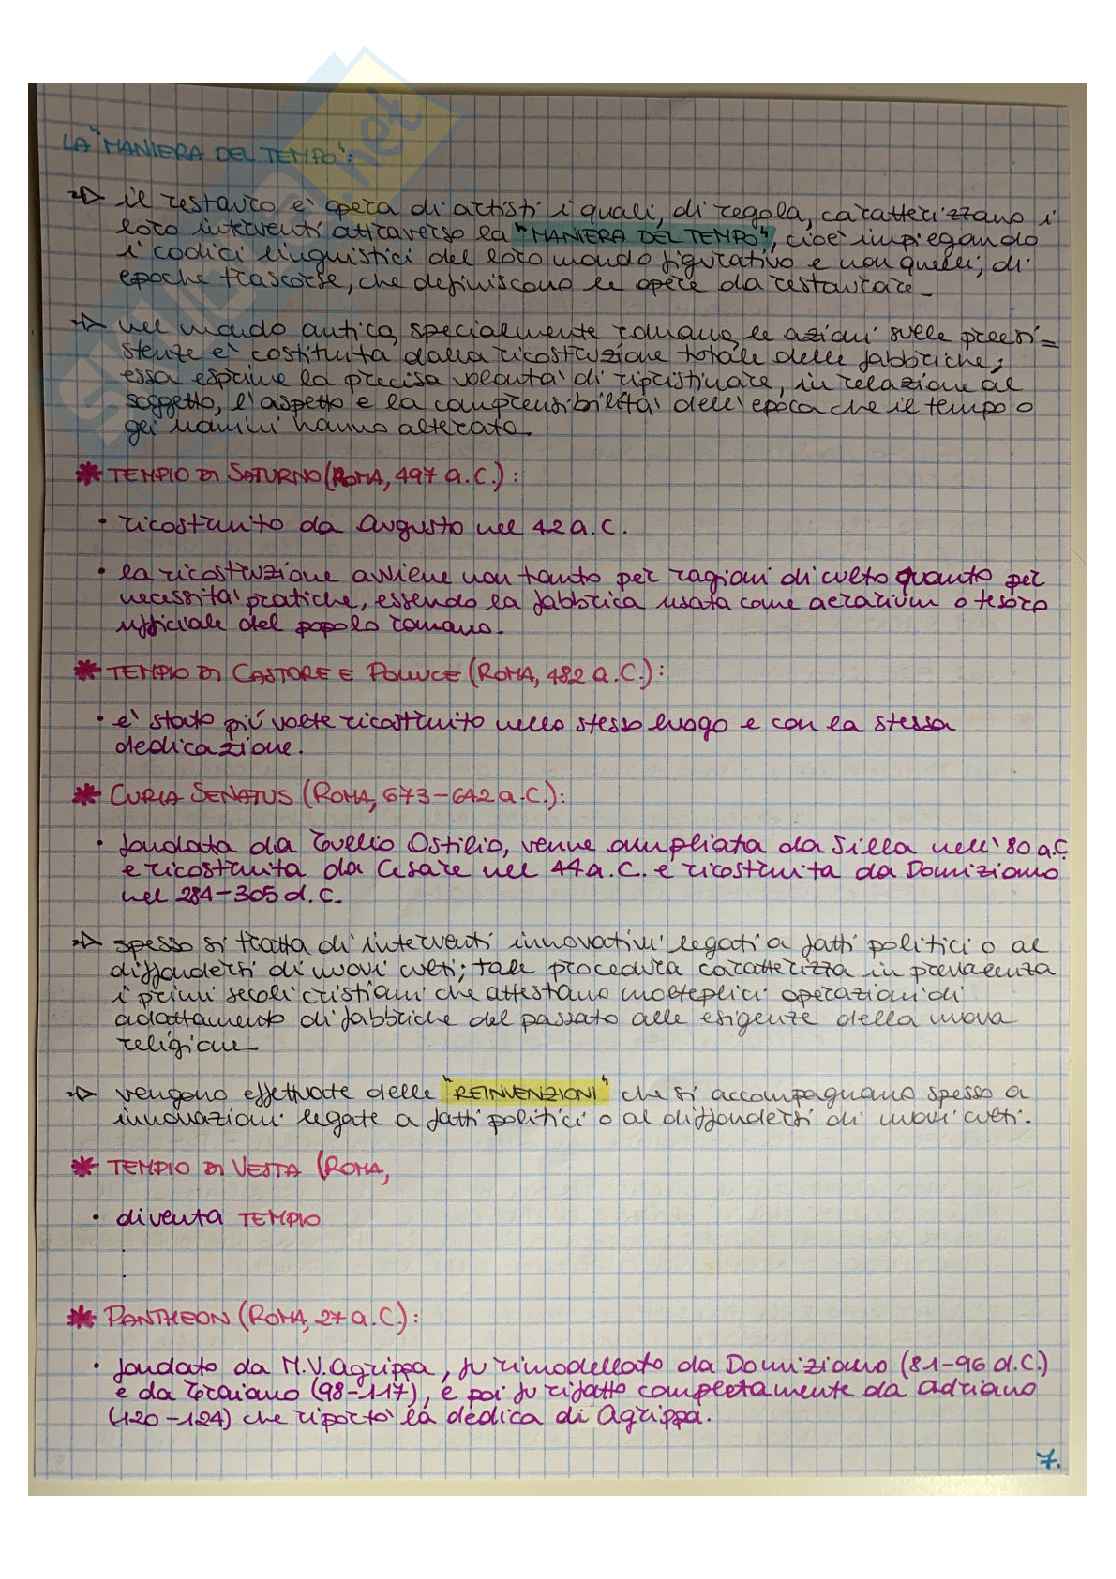 LA "MANIERA DEL TEMPO":
il restauro e' opera di artisti i quali, di regola, caratterizzano i
loro interventi attraverso la "MANIERA DEL TEMPO", cioe' impiegando
i codici linguistici del loro mondo figurativo e non quelli, di
epoche trascorse, che definiscono le opere da restaurare.
nel mondo antico, specialmente romano, le azioni sulle preesi=
stenze e' costituita dalla ricostruzione totale delle fabbriche;
essa esprime la precisa volonta' di ripristinare, in relazione al
soggetto, l'aspetto e la comprensibilita' dell'epoca che il tempo o
gli uomini hanno alterato.
* TEMPIO DI SATURNO (ROMA, 497 a.C.):
• ricostruito da Augusto nel 42 a.C.
• la ricostruzione avviene non tanto per ragioni di culto quanto per
necessita' pratiche, essendo la fabbrica usata come aerarium o tesoro
ufficiale del popolo romano.
* TEMPIO DI CASTORE E POLLUCE (ROMA, 482 a.C.):
• e' stato più volte ricostruito nello stesso luogo e con la stessa
dedicazione.
* CURIA SENATUS (ROMA, 673-642 a.C.):
• fondata da Tullio Ostilio, venne ampliata da Silla nell'80 a.C.
e ricostruita da Cesare nel 44 a.C. e ricostruita da Domiziano
nel 284-305 d.C.
spesso si tratta di interventi innovativi legati a fatti politici o al
diffondersi di nuovi culti; tale procedura caratterizza in prevalenza
i primi secoli cristiani che attestano molteplici operazioni di
adattamento di fabbriche del passato alle esigenze della nuova
religione.
vengono effettuate delle "REINVENZIONI" che si accompagnano spesso a
innovazioni legate a fatti politici o al diffondersi di nuovi culti.
* TEMPIO DI VESTA (ROMA,
• diventa TEMPIO
* PANTHEON (ROMA, 27 a.C.):
• fondato da M.V. Agrippa, fu rimodellato da Domiziano (81-96 d.C.)
e da Traiano (98-117), e poi fu rifatto completamente da Adriano
(120-124) che riporto' la dedica di Agrippa.
7.